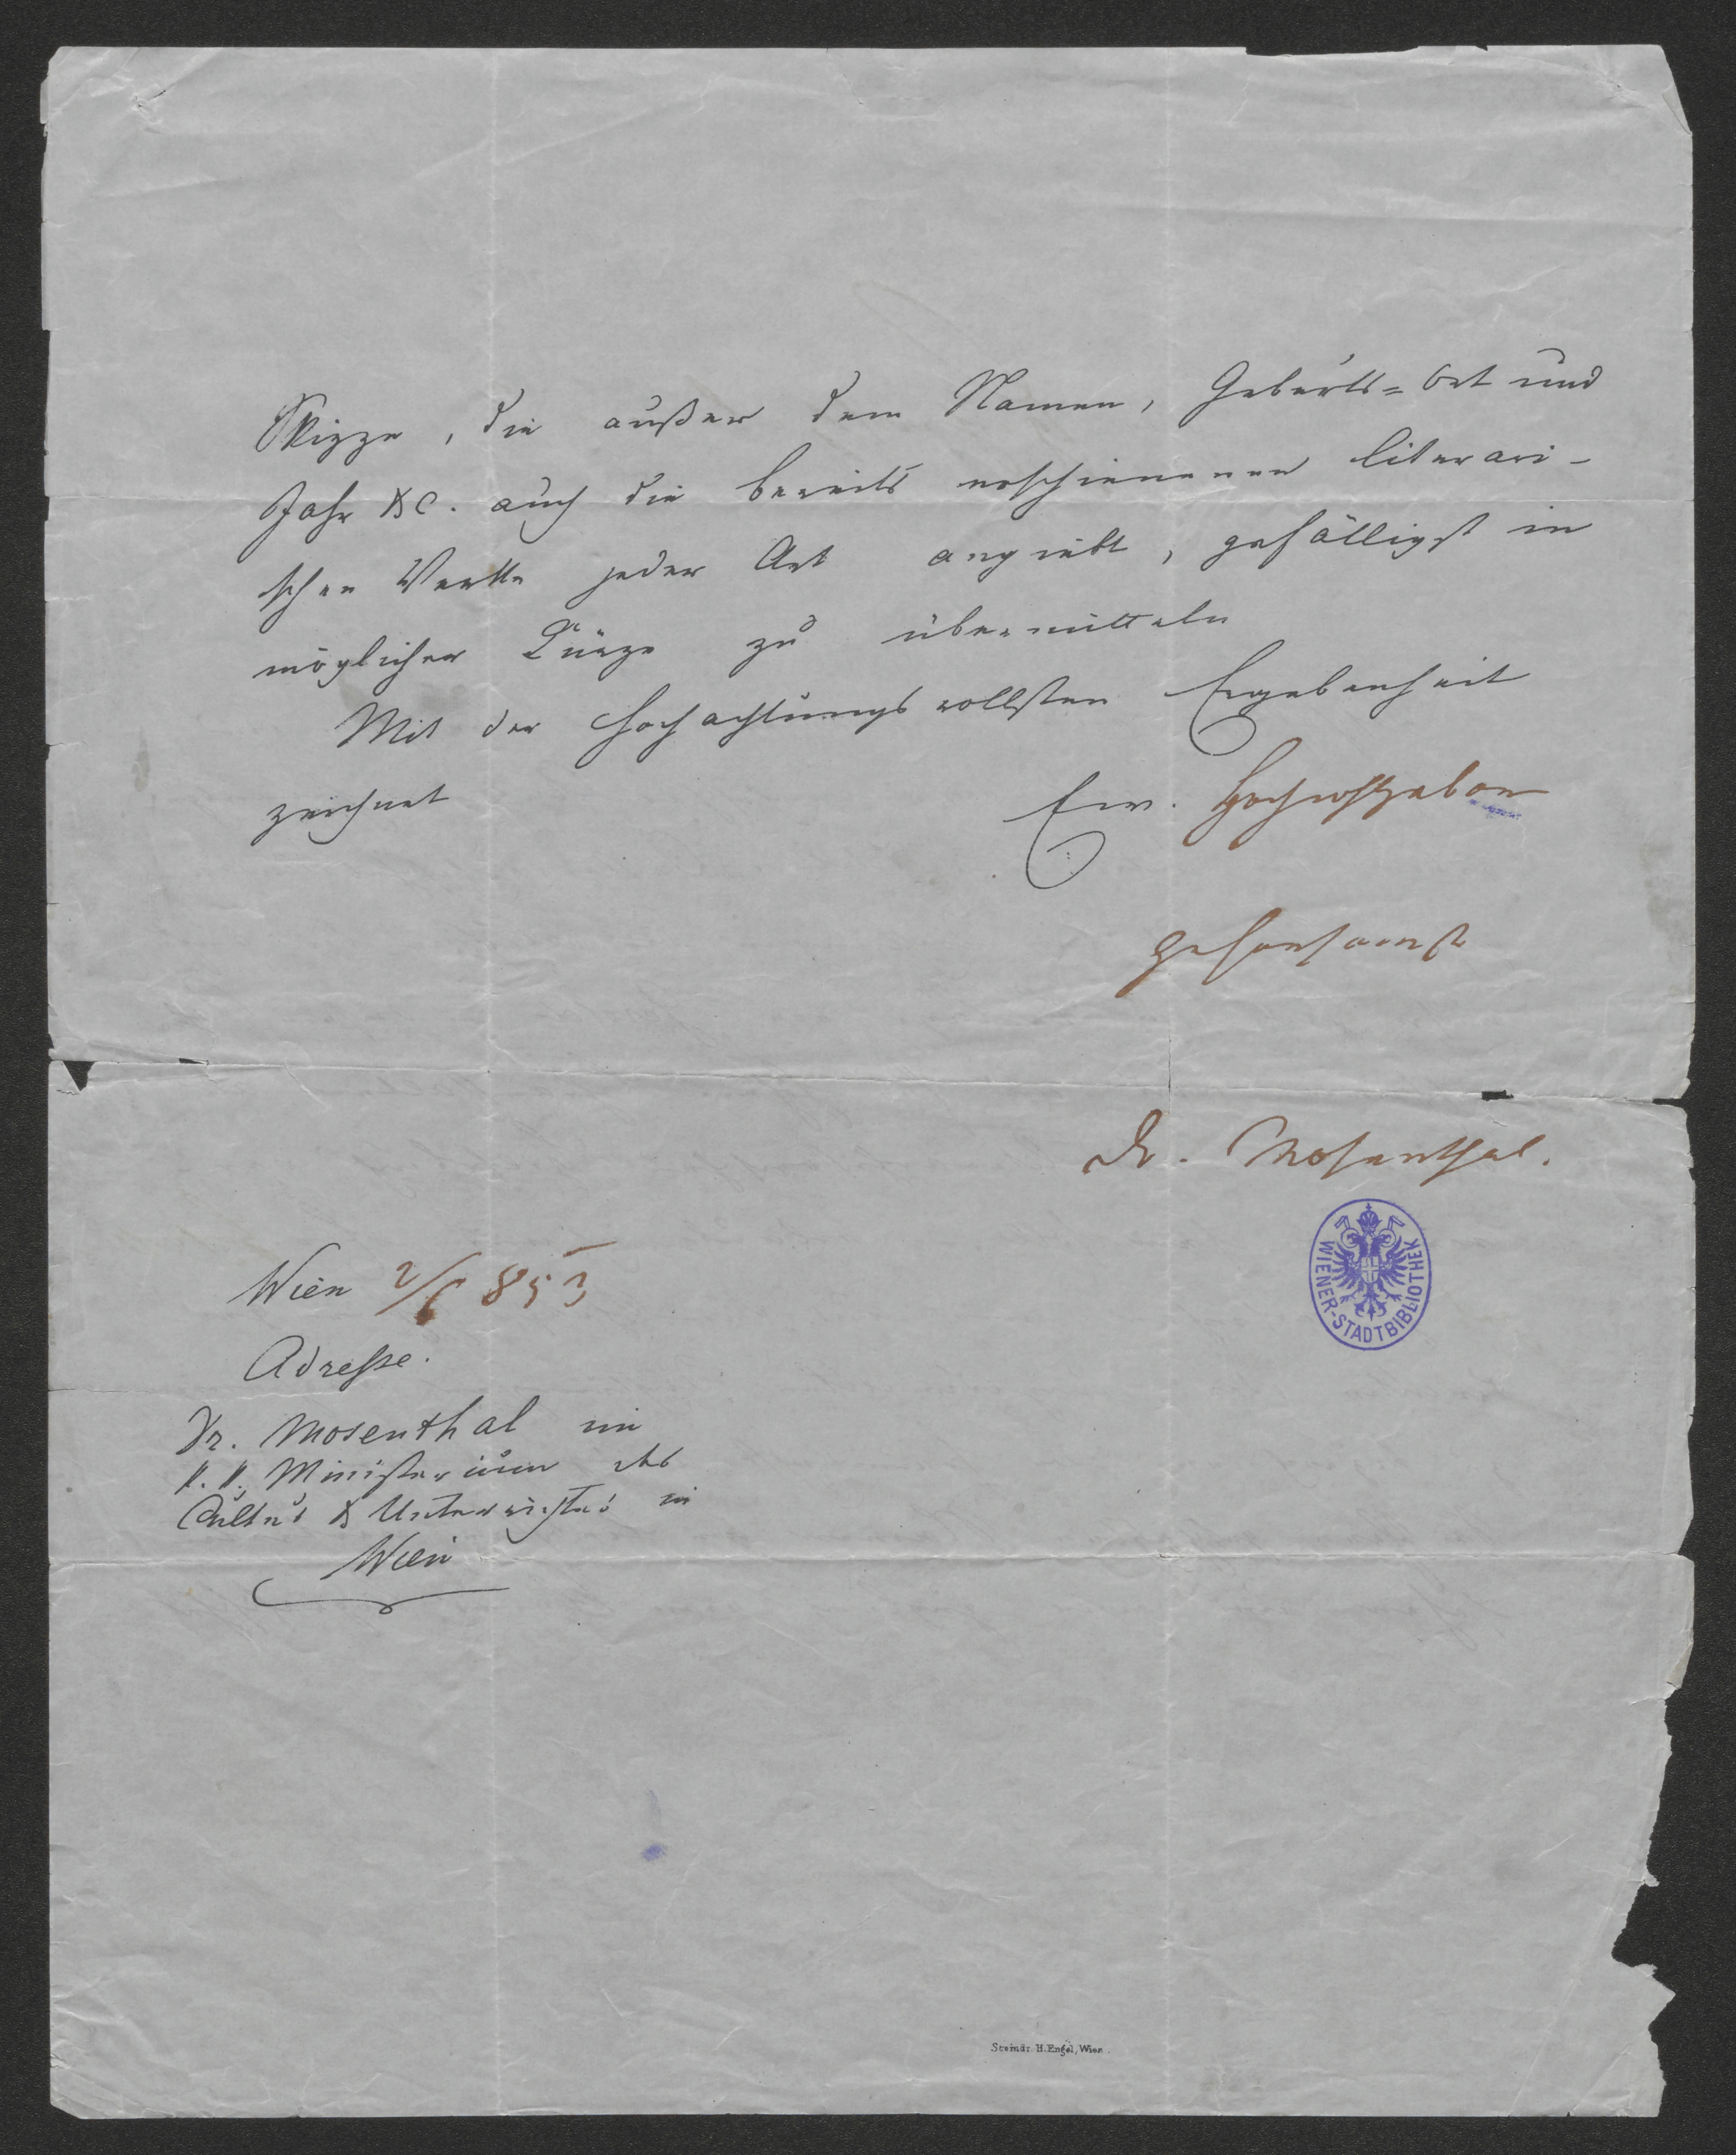 Skizze, die außer dem Namen, Geburts= Ort und
Jahr &c. auch die bereits erschienenen literari-
schen Werke jeder Art angiebt, gefälligst in
möglicher Kürze zu übermitteln
Mit der hochachtungsvollsten Ergebenheit
zeichnet
Euer Hochwohlgeboren
gehorsamst
Dr. Mosenthal.
Wien 2/6 853
WIENER-STADTBIBLIOTHEK
Adresse.
Dr. Mosenthal im
k. k. Ministerium des
Cultus & Unterrichtes in
Wien
Steindr. H. Engel, Wien.